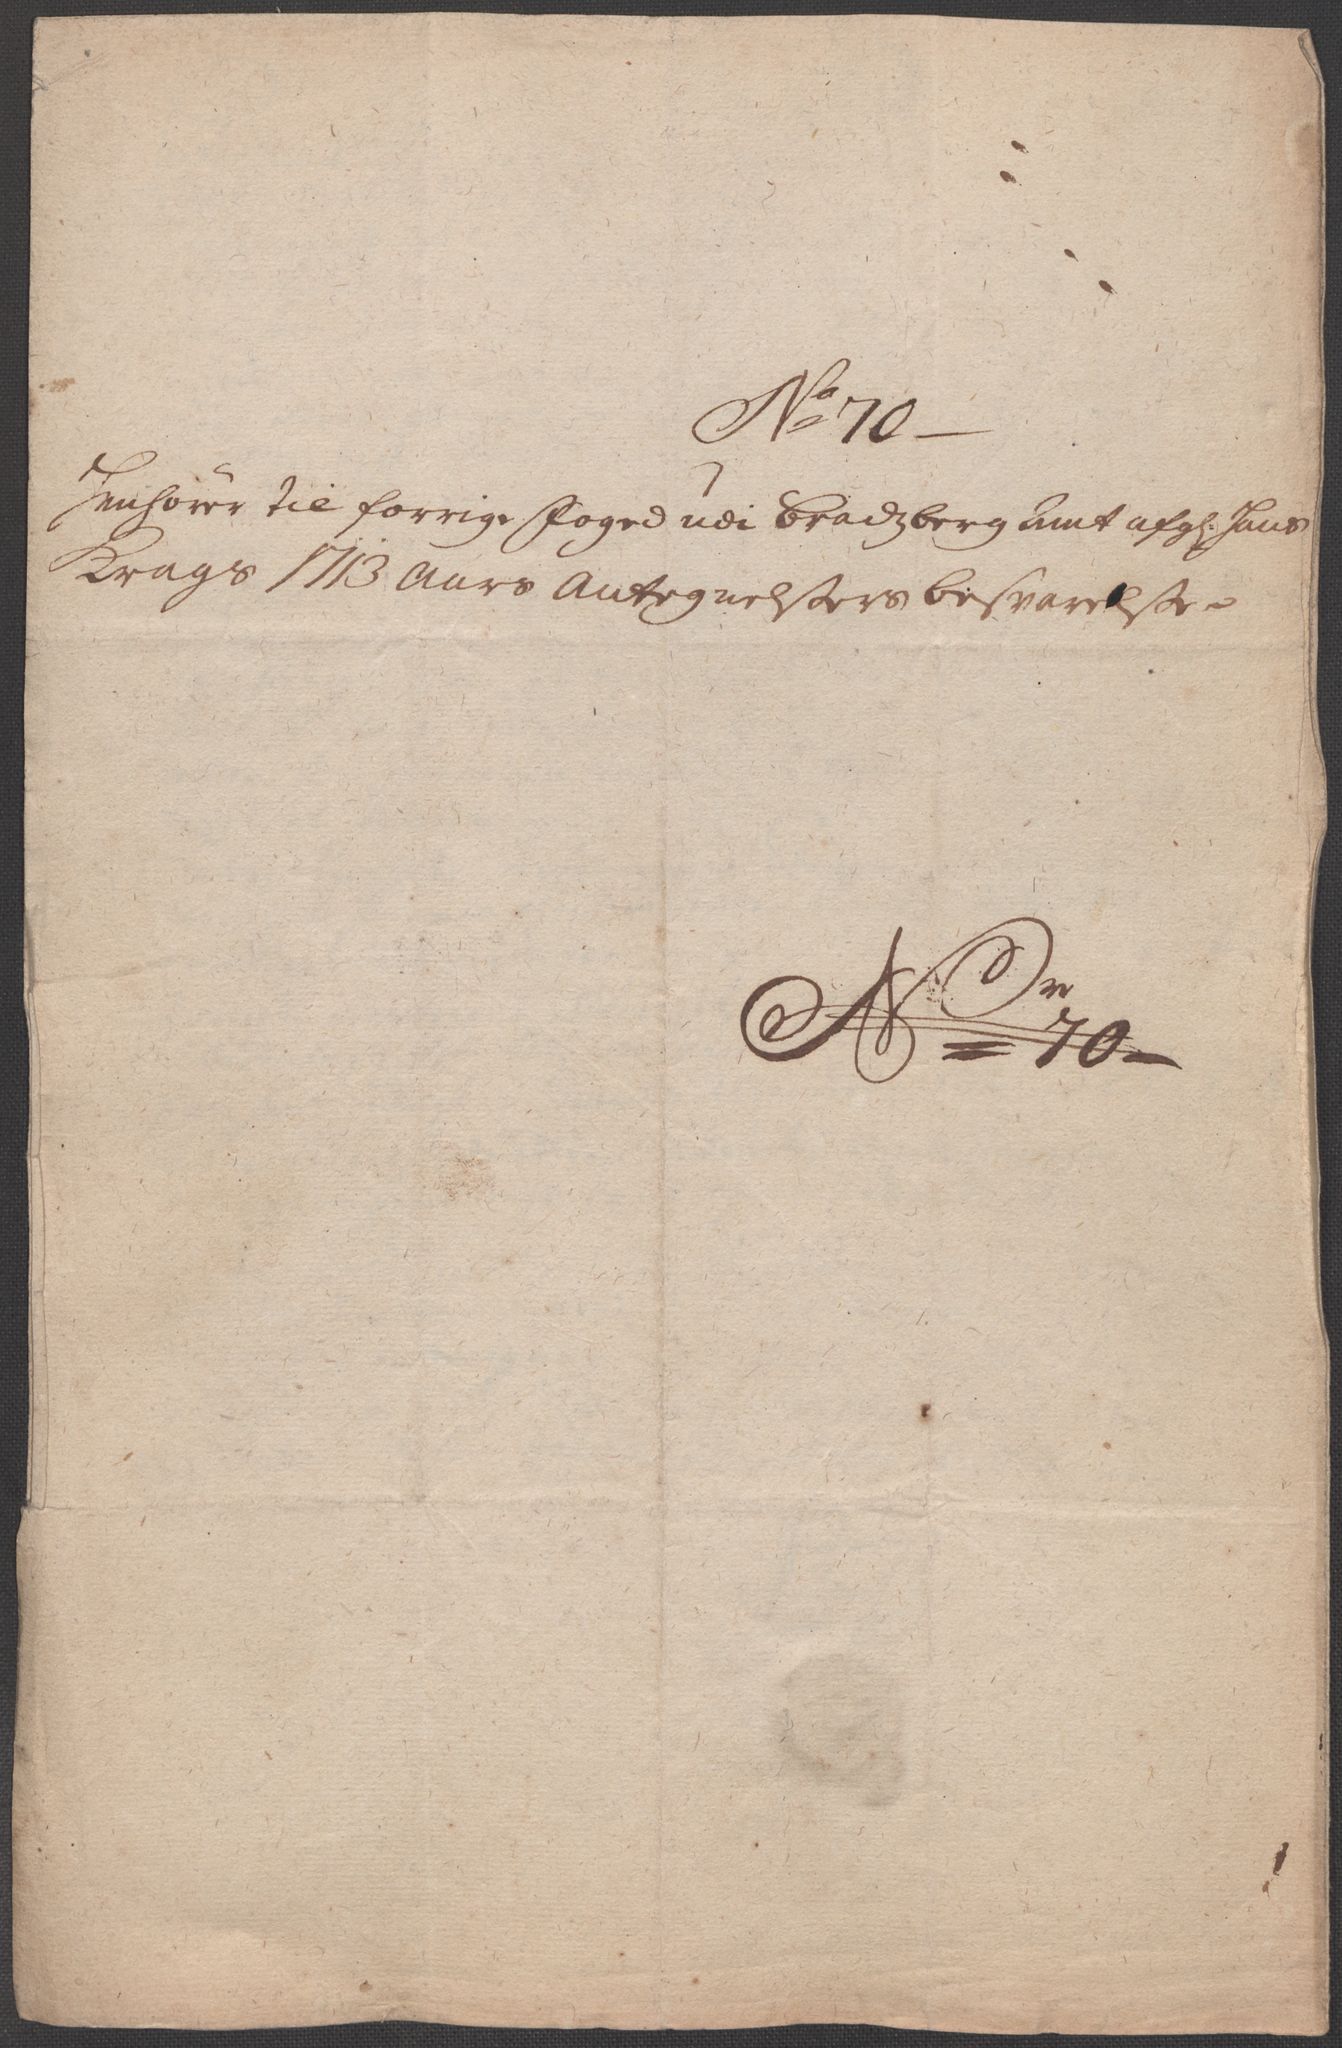 No 70
Henhörer til forrige Foged udi Bradtzberg Amt afgl: Hans
Krags 1713 Aars Antegnelsers besvarelse
No 70